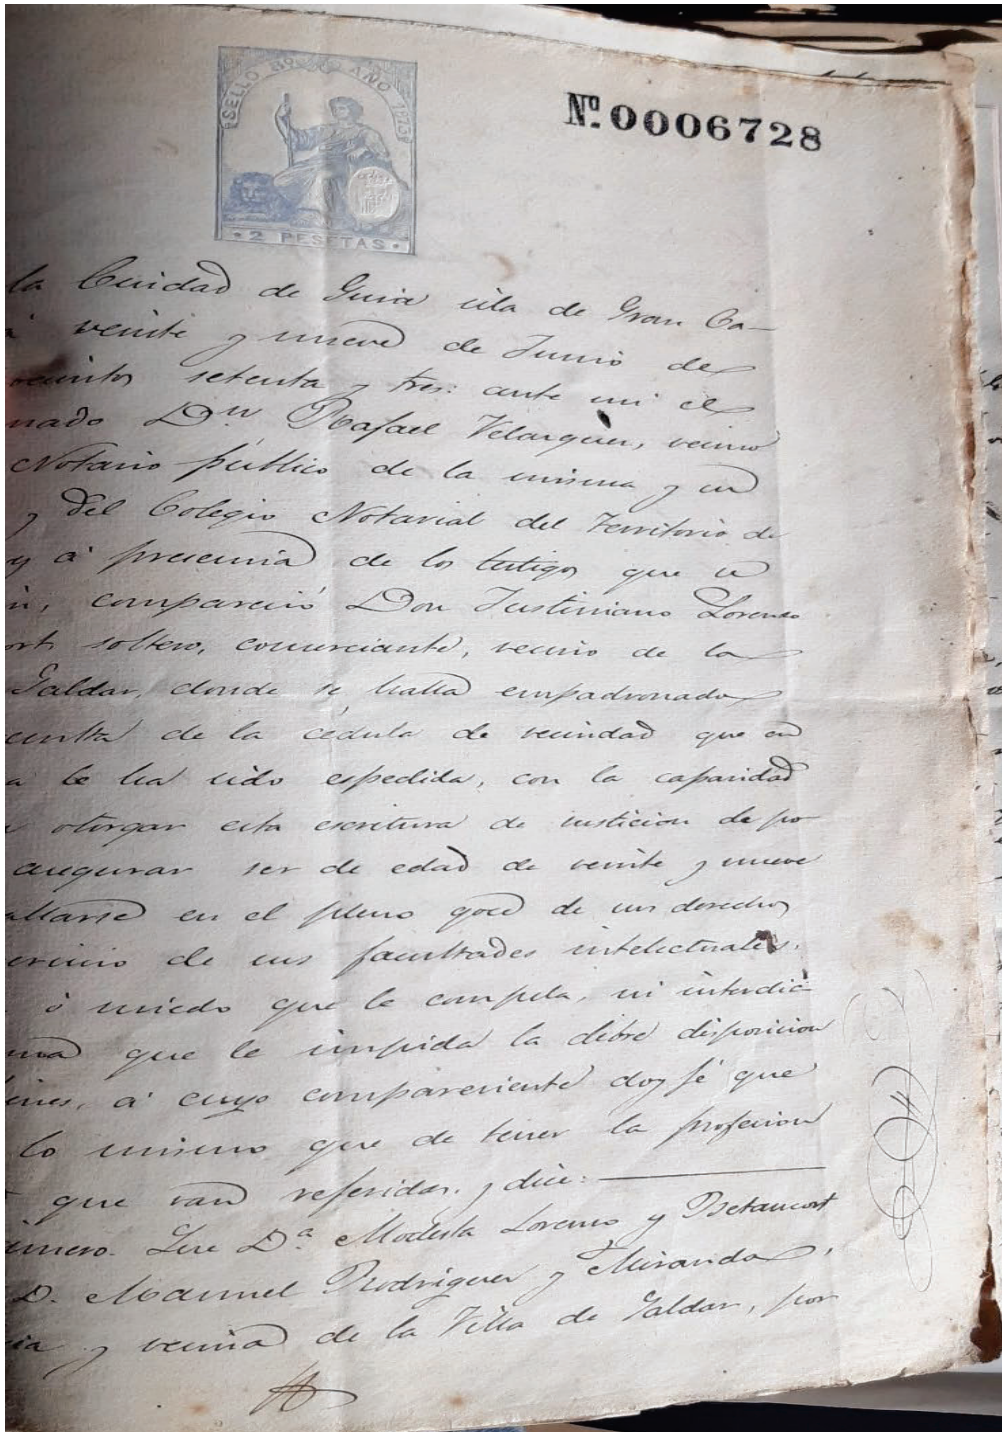 SELLO 8º AÑO 1873
Nº 0006728
• 2 PESETAS •
la Ciudad de Guia isla de Gran Ca-
á veinte y nueve de Junio de
ocientos setenta y tres: ante mi el
nado Dn Rafael Velazquez, vecino
Notario público de la misma y su
y del Colegio Notarial del Territorio de
y á presencia de los testigos que se
n, compareció Don Justiniano Lorenzo
ort, soltero, comerciante, vecino de la
Galdar, donde se halla empadronado
sulta de la cédula de vecindad que en
a le ha sido espedida, con la capacidad
otorgar esta escritura de de po-
asegurar ser de edad de veinte y nueve
allarse en el pleno goce de sus derechos
ercicio de sus facultades intelectuales,
ó miedo que le compela, ni interdic-
una que le impida la libre disposicion
ienes, á cuyo compareciente doy fé que
lo mismo que de tener la profesion
que van referidas, y dice:
imero. Que Dª Modesta Lorenzo y Betancort
D. Manuel Rodriguez y Miranda,
cia y vecina de la Villa de Galdar, por